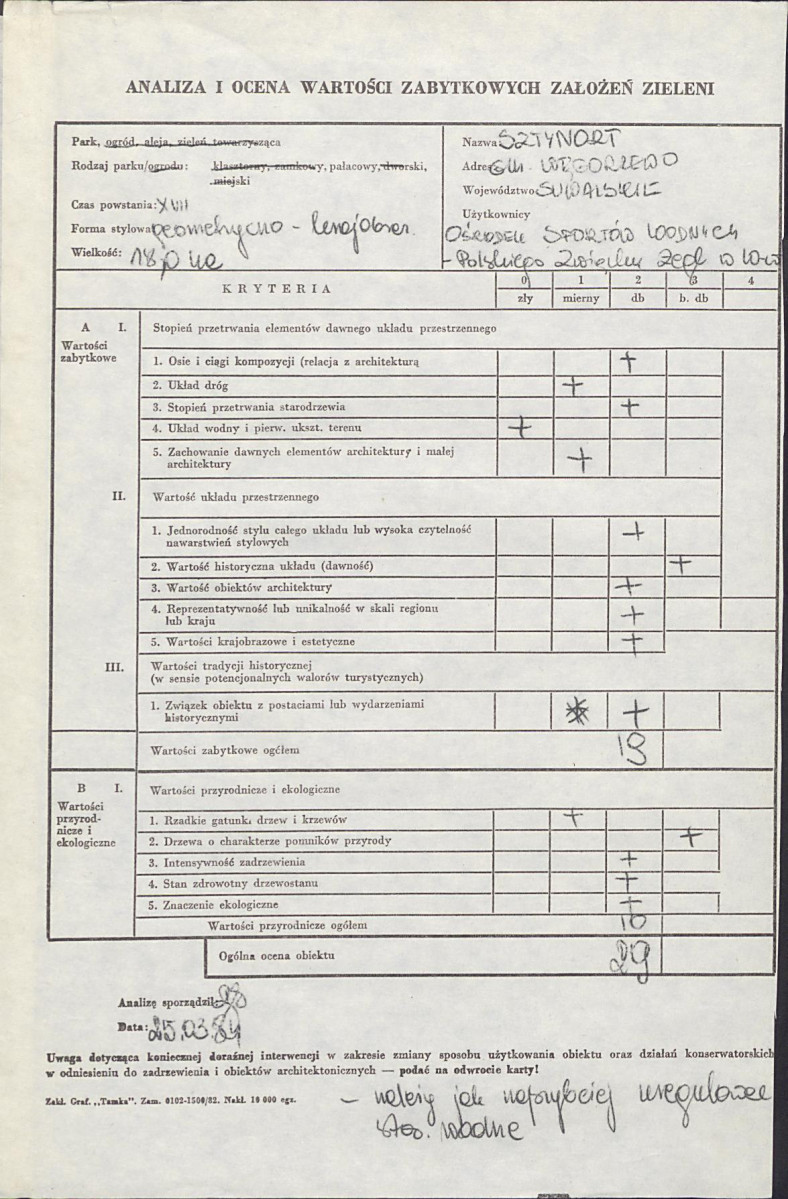 ANALIZA I OCENA WARTOŚCI ZABYTKOWYCH ZAŁOŻEŃ ZIELENI
Park, ogród, aleja, zieleń towarzysząca
Rodzaj parku/ogrodu: klasztorny, zamkowy, pałacowy, dworski,
miejski
Czas powstania: XVII
Forma stylowa: geometryczno - krajobraz.
Wielkość: 18,0 ha
Nazwa SZTYNORT
Adres GM. WĘGORZEWO
Województwo SUWALSKIE
Użytkownicy
OŚRODEK SPORTÓW WODNYCH
- Polskiego Związku Żegl
KRYTERIA
0 1 2 3 4
zły mierny db b. db
A I. Stopień przetrwania elementów dawnego układu przestrzennego
Wartości
zabytkowe
1. Osie i ciągi kompozycji (relacja z architekturą +
2. Układ dróg +
3. Stopień przetrwania starodrzewia +
4. Układ wodny i pierw. ukszt. terenu +
5. Zachowanie dawnych elementów architektury i małej
architektury +
II. Wartość układu przestrzennego
1. Jednorodność stylu całego układu lub wysoka czytelność
nawarstwień stylowych +
2. Wartość historyczna układu (dawność) +
3. Wartość obiektów architektury +
4. Reprezentatywność lub unikalność w skali regionu
lub kraju +
5. Wartości krajobrazowe i estetyczne +
III. Wartości tradycji historycznej
(w sensie potencjonalnych walorów turystycznych)
1. Związek obiektu z postaciami lub wydarzeniami
historycznymi +
Wartości zabytkowe ogółem 19
B I. Wartości przyrodnicze i ekologiczne
Wartości
przyrod-
nicze i
ekologiczne
1. Rzadkie gatunki drzew i krzewów +
2. Drzewa o charakterze pomników przyrody +
3. Intensywność zadrzewienia +
4. Stan zdrowotny drzewostanu +
5. Znaczenie ekologiczne +
Wartości przyrodnicze ogółem 10
Ogólna ocena obiektu 29
Analizę sporządził:
Data: 25.03.84
Uwaga dotycząca koniecznej doraźnej interwencji w zakresie zmiany sposobu użytkowania obiektu oraz działań konserwatorskich
w odniesieniu do zadrzewienia i obiektów architektonicznych — podać na odwrocie karty!
Zakł. Graf. „Tamka". Zam. 0102-1500/82. Nakł. 10 000 egz.
- należy jak najszybciej uregulować
stos. wodne